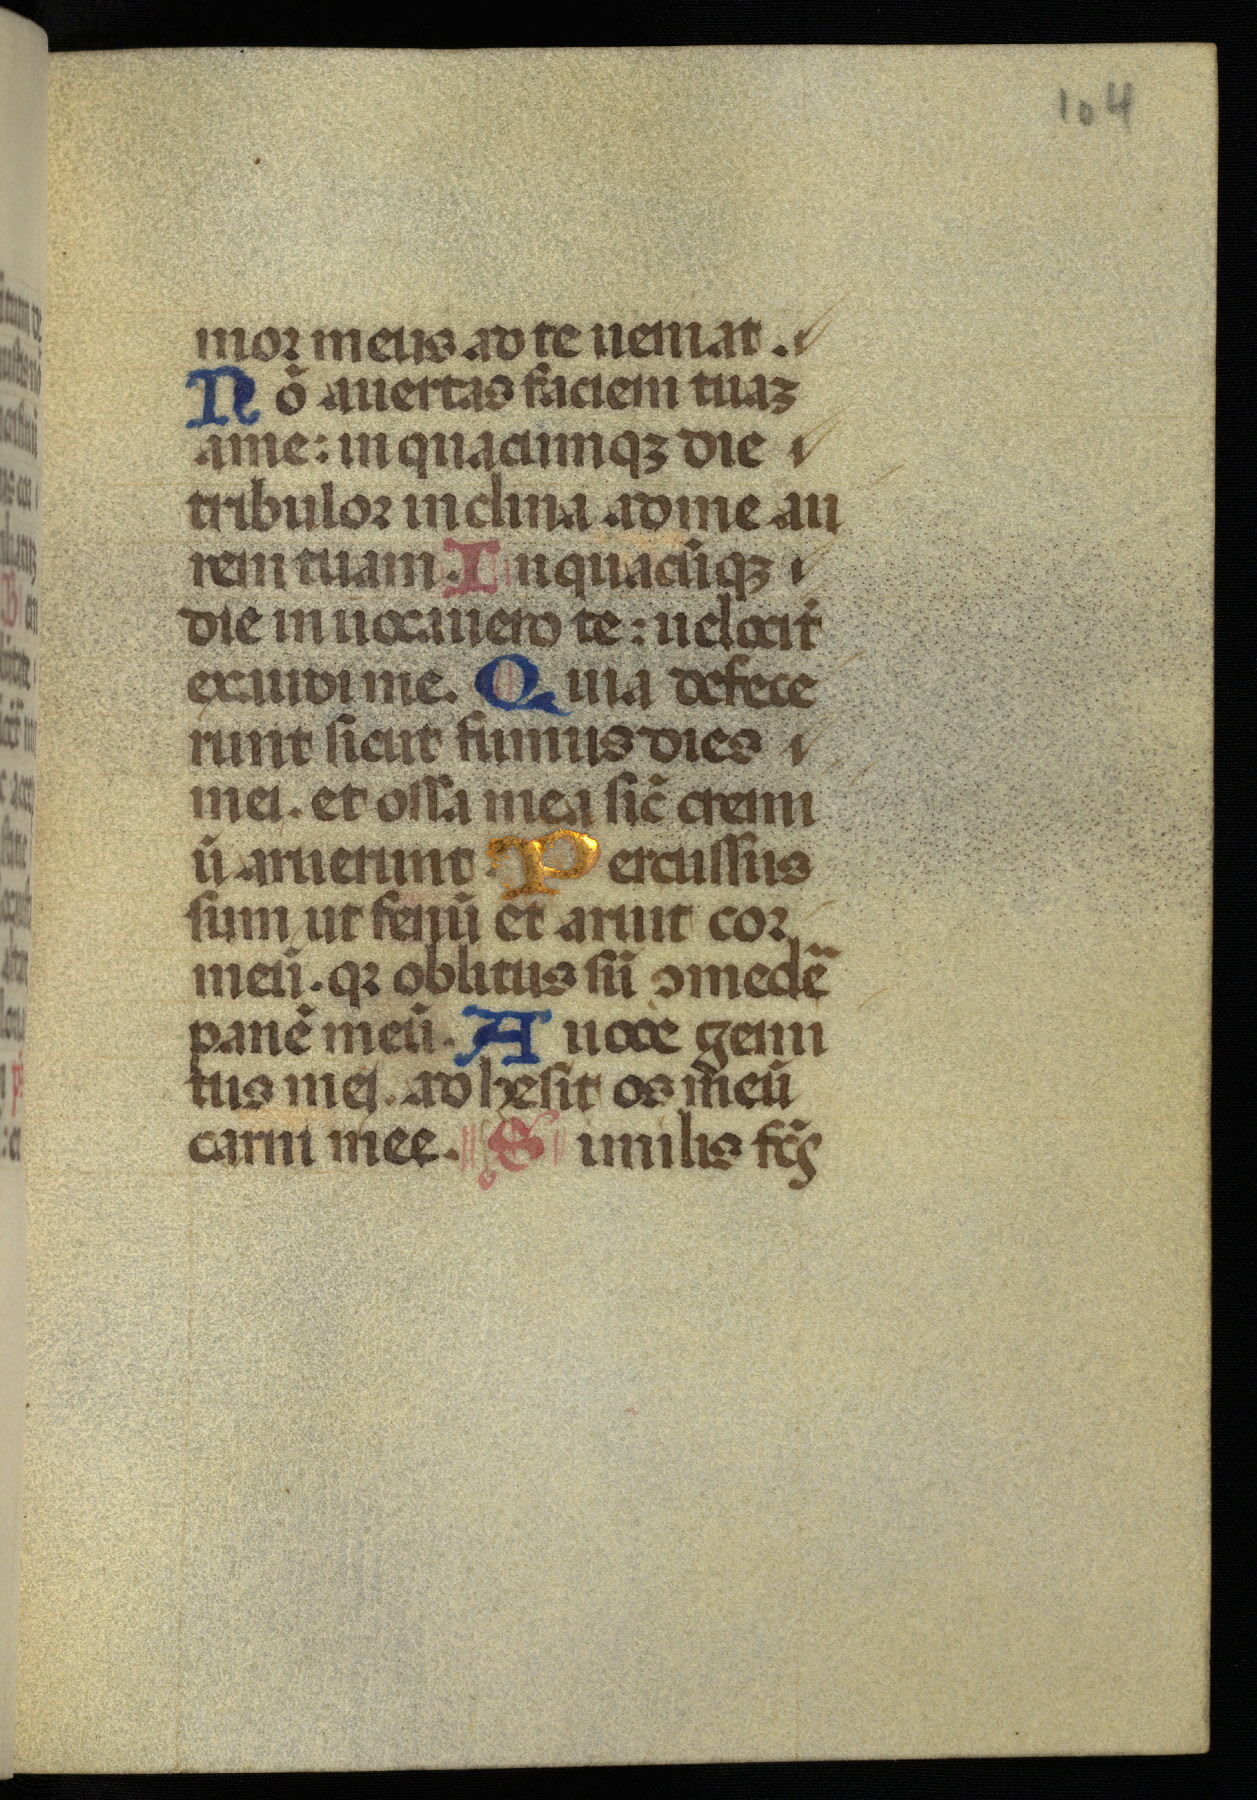 104
mor meus ad te ueniat.
Nō auertas faciem tuaz
a me: in quacumqz die
tribulor inclina ad me au
rem tuam. In quacūqz
die inuocauero te: uelocit̄
exaudi me. Quia defece
runt sicut fumus dies
mei. et ossa mea sic̄ cremi
ū aruerunt. Percussus
sum ut fenū et aruit cor
meū. qꝛ oblitus sū ɔmedē
panē meū. A uoce gemi
tus mei. adhesit os meū
carni mee. Similis fc̄s